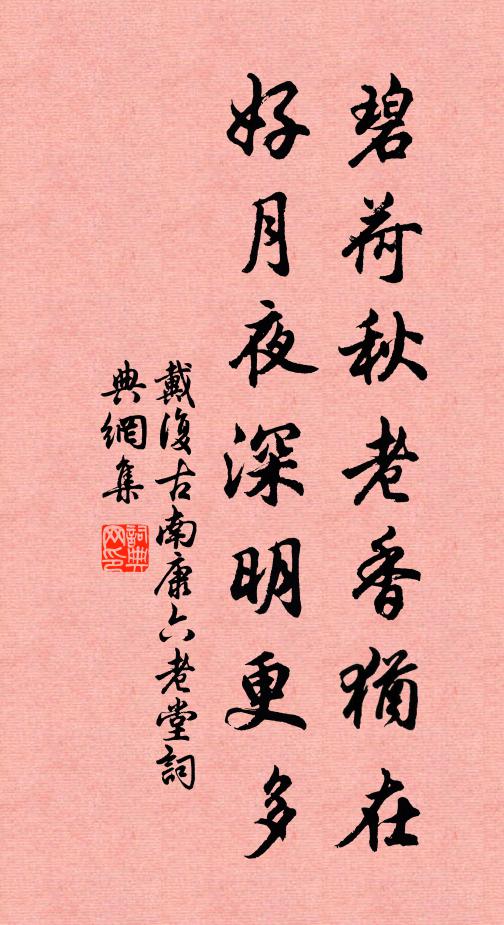 碧荷秋老香猶在
好月夜深明更多
戴復古南康六老堂詞
典網集
詞典
网印